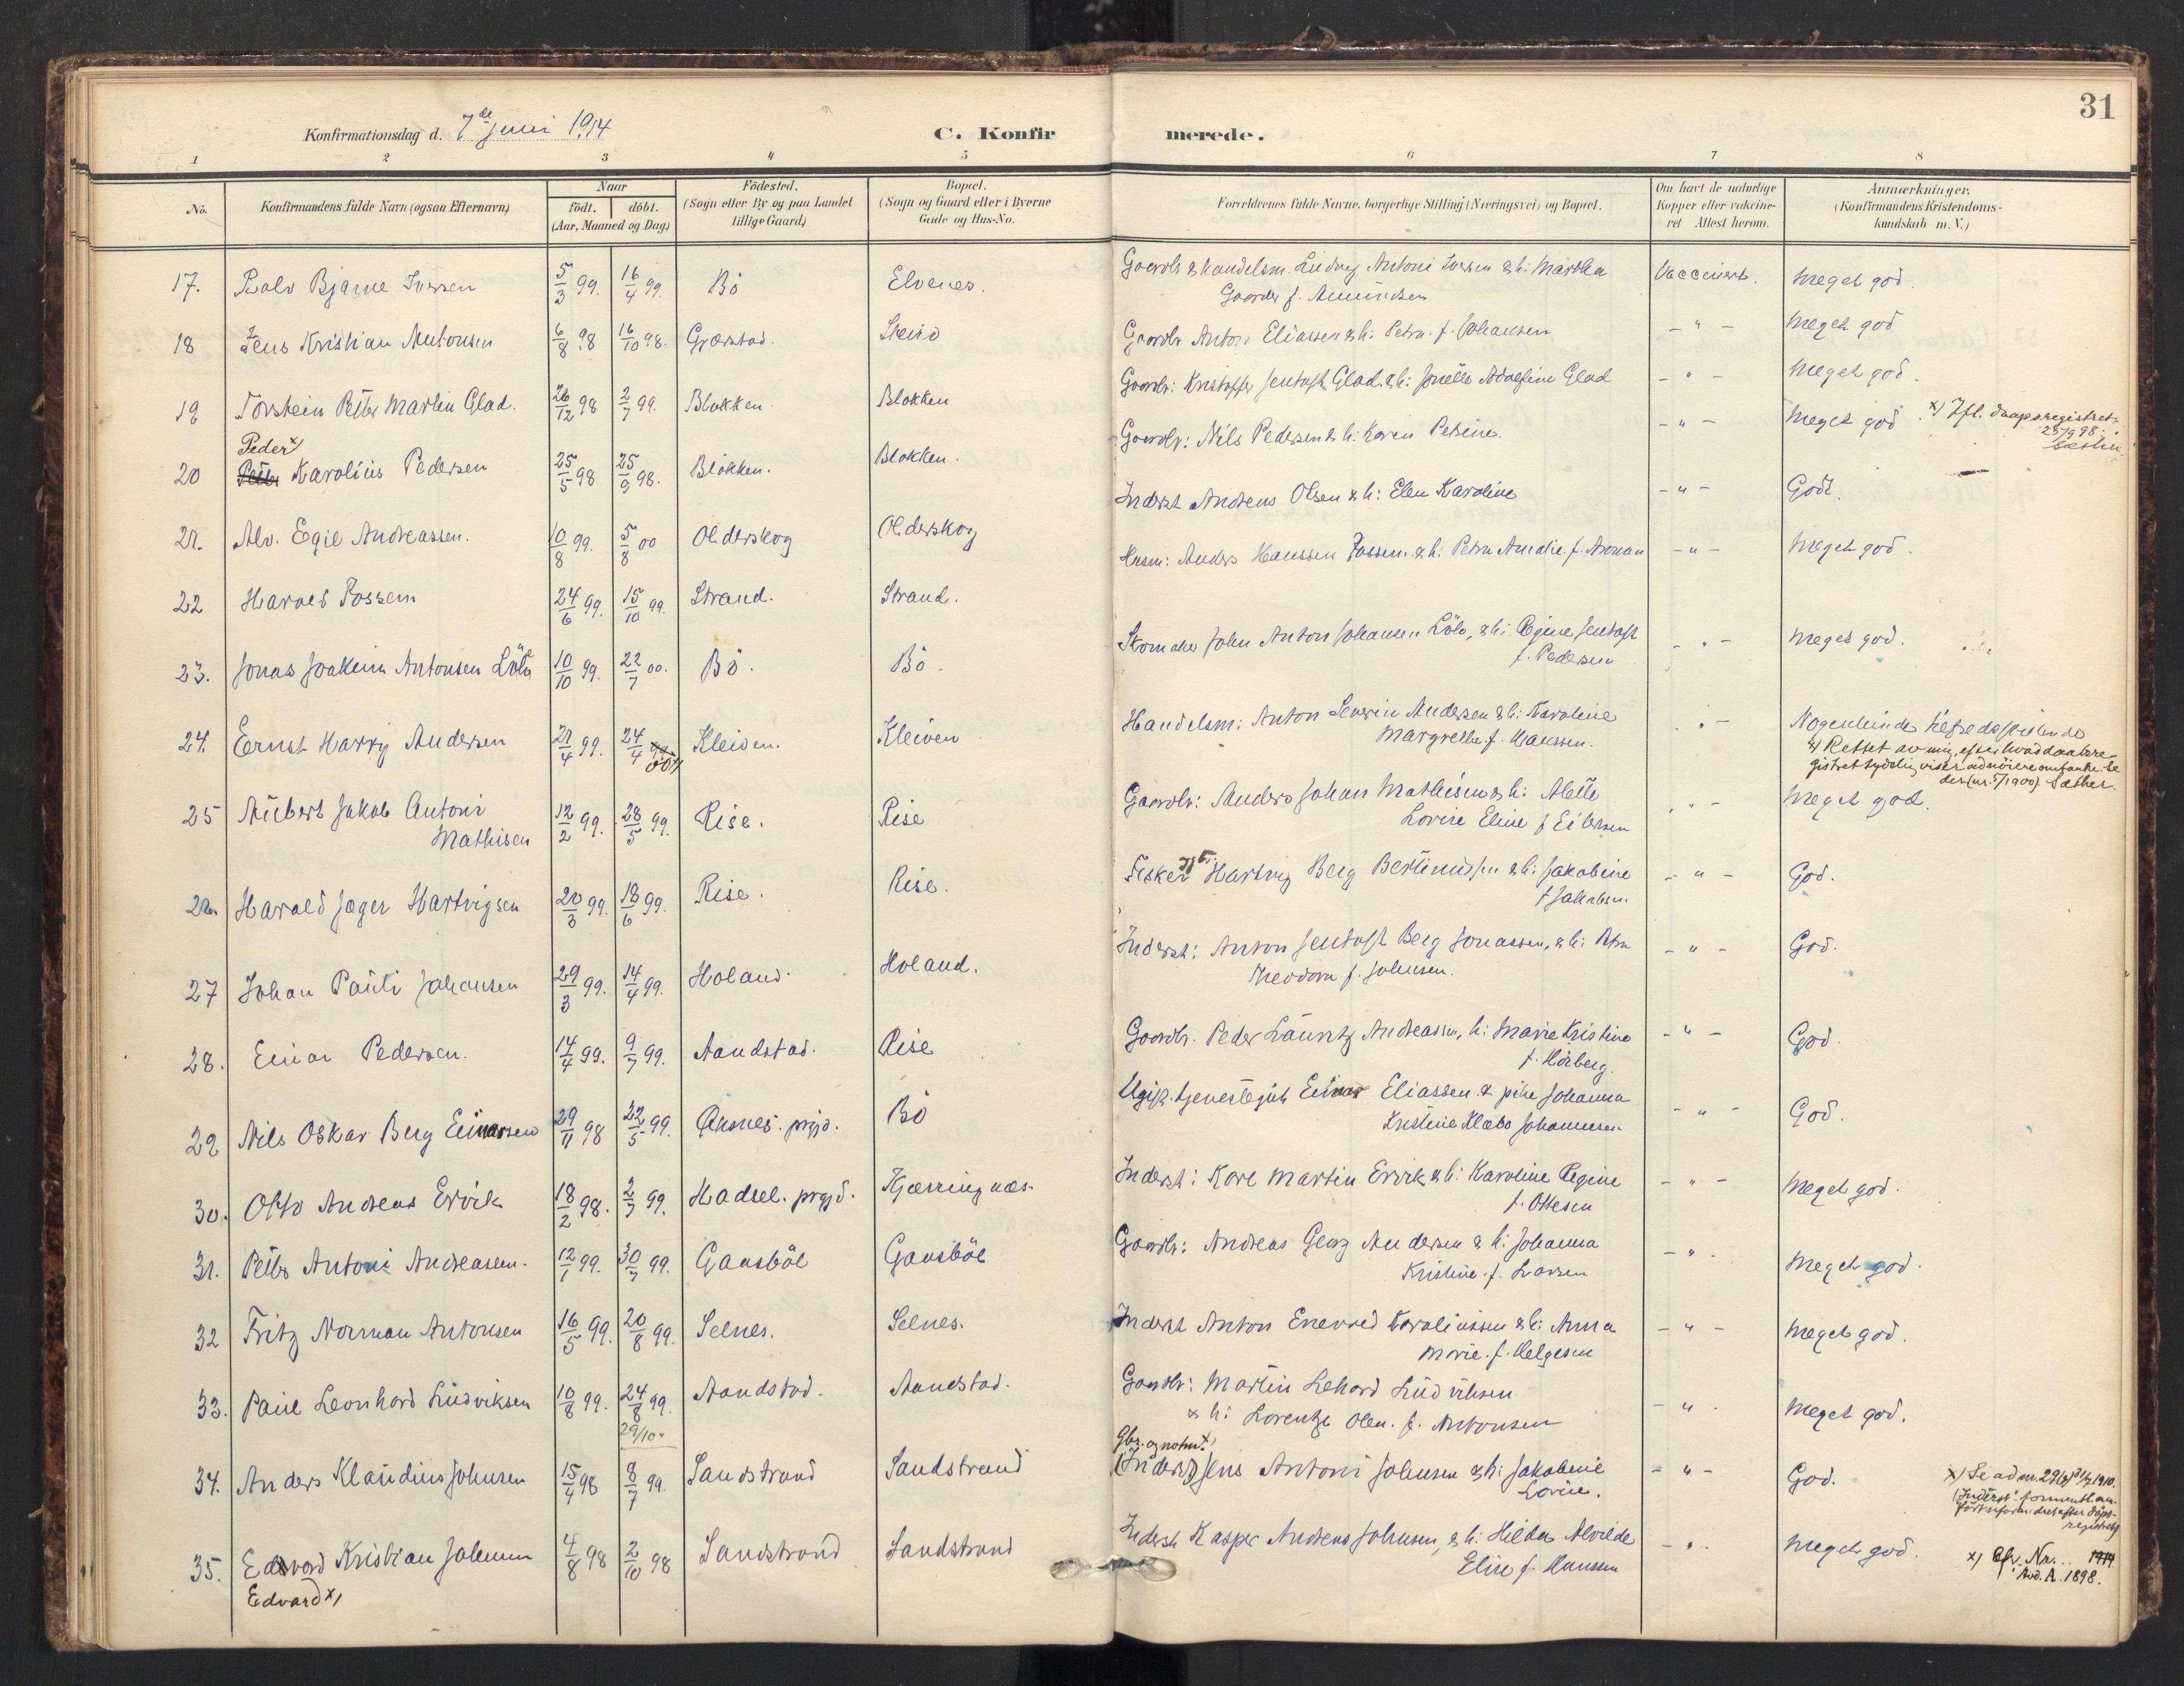 31
Konfirmationsdag d. 7de juni 1914
C. Konfirmerede.
1 2 3 4 5 6 7 8
No.
Konfirmandens fulde Navn (ogsaa Efternavn)
Naar
födt. döbt.
(Aar, Maaned og Dag)
Födested.
(Sogn eller By og paa Landet
tillige Gaard)
Bopæl.
(Sogn og Gaard eller i Byerne
Gade og Hus-No.
Forældrenes fulde Navne, borgerlige Stilling (Næringsvei) og Bopæl.
Om havt de naturlige
Kopper eller vakcine-
ret Attest herom.
Anmærkninger.
(Konfirmandens Kristendoms-
kundskab m. V.)
17. Rolv Bjarne Iversen 5/3 99. 16/4 99. Bö Elvenes. Gaardbr & handelsm. Ludvig Antoni Iversen & h: Martha Vaccinert. Meget god.
Gaarder f. Amundsen
18 Jens Kristian Antonsen 6/8 98 16/10 98. Grærstad. Steiro Gaardbr Anton Eliassen & h: Petra f. Johansen - " - Meget god
19 Torstein Peter Martin Glad. 26/12 98 2/7 99. Blokken. Blokken Gaardbr: Kristoffer Jentoft Glad & h: Adolfine Glad - " - Meget god.
Peder x)
20 Peter Karolius Pedersen 25/5 98 25/9 98. Blokken. Blokken. Gaardbr: Nils Pedersen & h: Karen Petrine. - " - Meget god
x) Ifl. daapsregistret
25/9 98.
21. Alv. Egil Andreassen. 10/8 99. 5/8 00 Olderskog Olderskog Inderst Andreas Olsen & h: Elen Karoline - " - Godt.
22 Harald Fossem 24/6 99. 15/10 99. Strand. Strand. Husm: Anders Hanssen Fossem & h: Petra Amalie f. Aronsen - " - Meget god.
23. Jonas Joakim Antonsen Lölo 10/10 99. 22/7 00. Bö. Bö. Skomaker John Anton Johansen Lölo, & h: Regine Jentoft - " - Meget god.
f. Pedersen
24. Ernst Harry Andersen 21/4 99. 24/4 99 00 Kleiven. Kleiven Handelsm: Anton Severin Andersen & h: Karoline " -
Margrethe f. Hanssen.
x) Rettet av mig, efter hvad daabsre-
gistret tydelig viser ad nöiere omtanke. Se
der (nr. 5/1900). Sæther.
25 Albert Jakob Antoni 12/2 99. 28/5 99. Rise. Rise Gaardbr: Anders Johan Mathisen & h: Alette " - Meget god.
Mathisen
Lovise Eline f Eilersen
26. Harald Jager Hartvigsen 20/3 99. 18/6 99. Rise. Rise. Fisker Hartvig Berg Bertinussen & h: Jakobine - " - God.
f Jakobsen.
27 Johan Pauli Johansen 29/3 99. 14/4 99. Holand. Holand. Inderst: Anton Jentoft Berg Jonassen, & h: Petra - " - God.
Theodora f. Johnsen.
28. Einar Pedersen. 14/4 99. 9/7 99. Aandstad. Rise Gaardbr. Peder Lauritz Andreassen, h: Marie Kristine - " - God.
f. Hörberg.
29 Nils Oskar Berg Einarsen 29/11 98 22/5 99. Öksnes. prgjd. Bö Ugift. tjenestegut Einar Eliassen & pike Johanna - " - God.
Kristine Klæbo Johannesen
30. Otto Andreas Ervik 18/2 98. 2/7 99. Hadsel. prgjd. Kjærringnæs. Inderst: Karl Martin Ervik & h: Karoline Regine - " - Meget god.
f. Ottesen
31. Peter Antoni Andreassen. 12/1 99. 30/7 99. Gansböl Gansböl Gaardbr: Andreas Georg Andersen & h: Johanna - " - Meget god.
Kristine f. Larsen
32 Fritz Norman Antonsen 16/5 99. 20/8 99. Selnes. Selnes. Inderst Anton Enevold Karoliussen & h: Anna - " - Meget god.
Marie. f. Helgesen
33. Paul Leonhard Ludviksen 10/8 99. 24/8 99. Aandstad. Aandstad. Gaardbr: Martin Lehard Ludviksen - " - Meget god.
29/10 "
& h: Lorentze Olen. f. Antonsen
Gbr. og notm. x)
34. Anders Klaudius Johnsen 15/4 98 8/7 99. Sandstrand Sandstrand (Inderst) Jens Antoni Johnsen & h: Jakobine - " - God.
Lovise.
x) Se ad nr. 29
35. Edvard Kristian Johnsen 4/8 98 2/10 98 Sandstrand Sandstrand Inderst Kasper Andreas Johnsen, & h: Hilda Alvilde - " - Meget god.
Edvard x)
Elise f. Hanssen
x) Cfr. Nr. . . 1914
Avd. A. 1898.